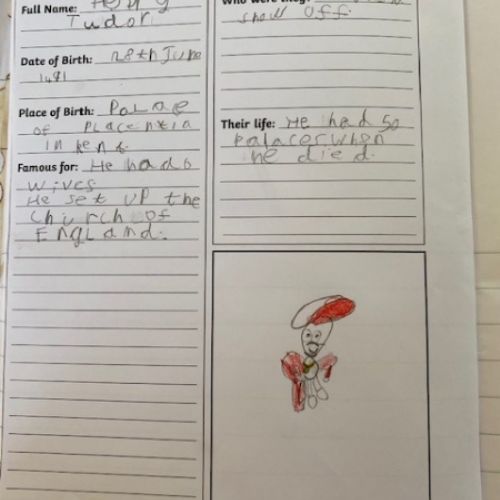 Full Name: Henry
Tudor
Date of Birth: 28th June
1491
Place of Birth: Palae
of Placentia
in kent
Famous for: He had 6
wives
He set up the
church of
England.
Who were they?
show off.
Their life: He had 50
palaces when
he died.